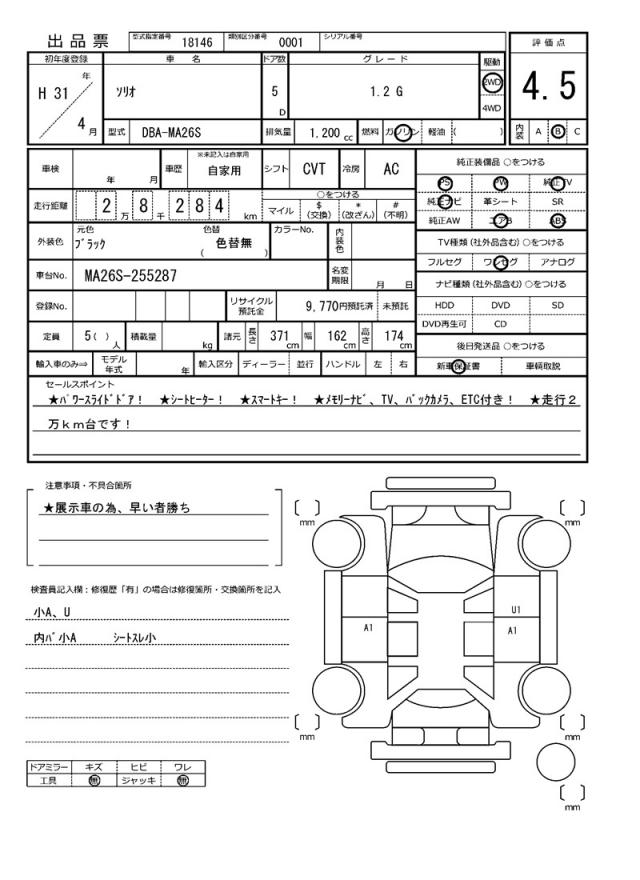 出品票 型式指定番号 18146 類別区分番号 0001 シリアル番号
評価点
4.5
初年度登録 車名 ドア数 グレード 駆動
H 31 年 4 月 ソリオ 5 D 1.2 G 2WD 4WD
型式 DBA-MA26S 排気量 1.200 cc 燃料 ガソリン 軽油 ( ) 内装 A B C
車検 年 月 車歴 ※未記入は自家用 自家用 シフト CVT 冷房 AC
純正装備品 ○をつける
PS PW 純正TV
純正ナビ 革シート SR
純正AW エアB ABS
走行距離 2 万 8 千 2 8 4 km
○をつける
マイル $ (交換) * (改ざん) # (不明)
外装色 元色 ブラック 色替 ( 色替無 ) カラーNo. 内装色
TV種類 (社外品含む) ○をつける
フルセグ ワンセグ アナログ
車台No. MA26S-255287 名変期限 月 日
ナビ種類 (社外品含む) ○をつける
HDD DVD SD
DVD再生可 CD
登録No. リサイクル預託金 9,770円預託済 未預託
定員 5 ( ) 人 積載量 kg 諸元 長さ 371 cm 幅 162 cm 高さ 174 cm
後日発送品 ○をつける
新車保証書 車輌取説
輸入車のみ⇒ モデル年式 年 輸入区分 ディーラー 並行 ハンドル 左 右
セールスポイント
★ﾊﾟﾜｰｽﾗｲﾄﾞﾄﾞｱ！ ★ｼｰﾄﾋｰﾀｰ！ ★ｽﾏｰﾄｷｰ！ ★ﾒﾓﾘｰﾅﾋﾞ、TV、ﾊﾞｯｸｶﾒﾗ、ETC付き！ ★走行２
万ｋｍ台です！
注意事項・不具合箇所
★展示車の為、早い者勝ち
検査員記入欄：修復歴「有」の場合は修復箇所・交換箇所を記入
小A、U
内ﾊﾞ小A ｼｰﾄｽﾚ小
ドアミラー キズ ヒビ ワレ
工具 無 ジャッキ 無
mm
mm
U1
A1
A1
mm
mm
mm